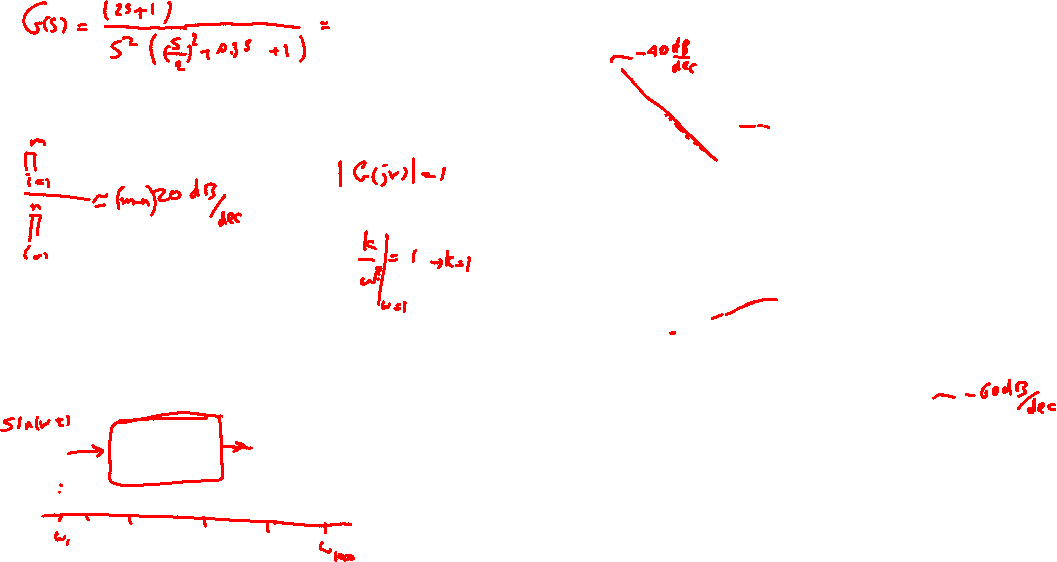 G(s) = (2s+1) / s² ((s/2)² + 0.3s + 1) =
~ -40 dB/dec
m
∏
i=1
n
∏
i=1
≃ (m-n) 20 dB/dec
|G(jw)| = 1
k/w² |w=1 = 1 → k=1
~ -60 dB/dec
sin(wt)
w₁